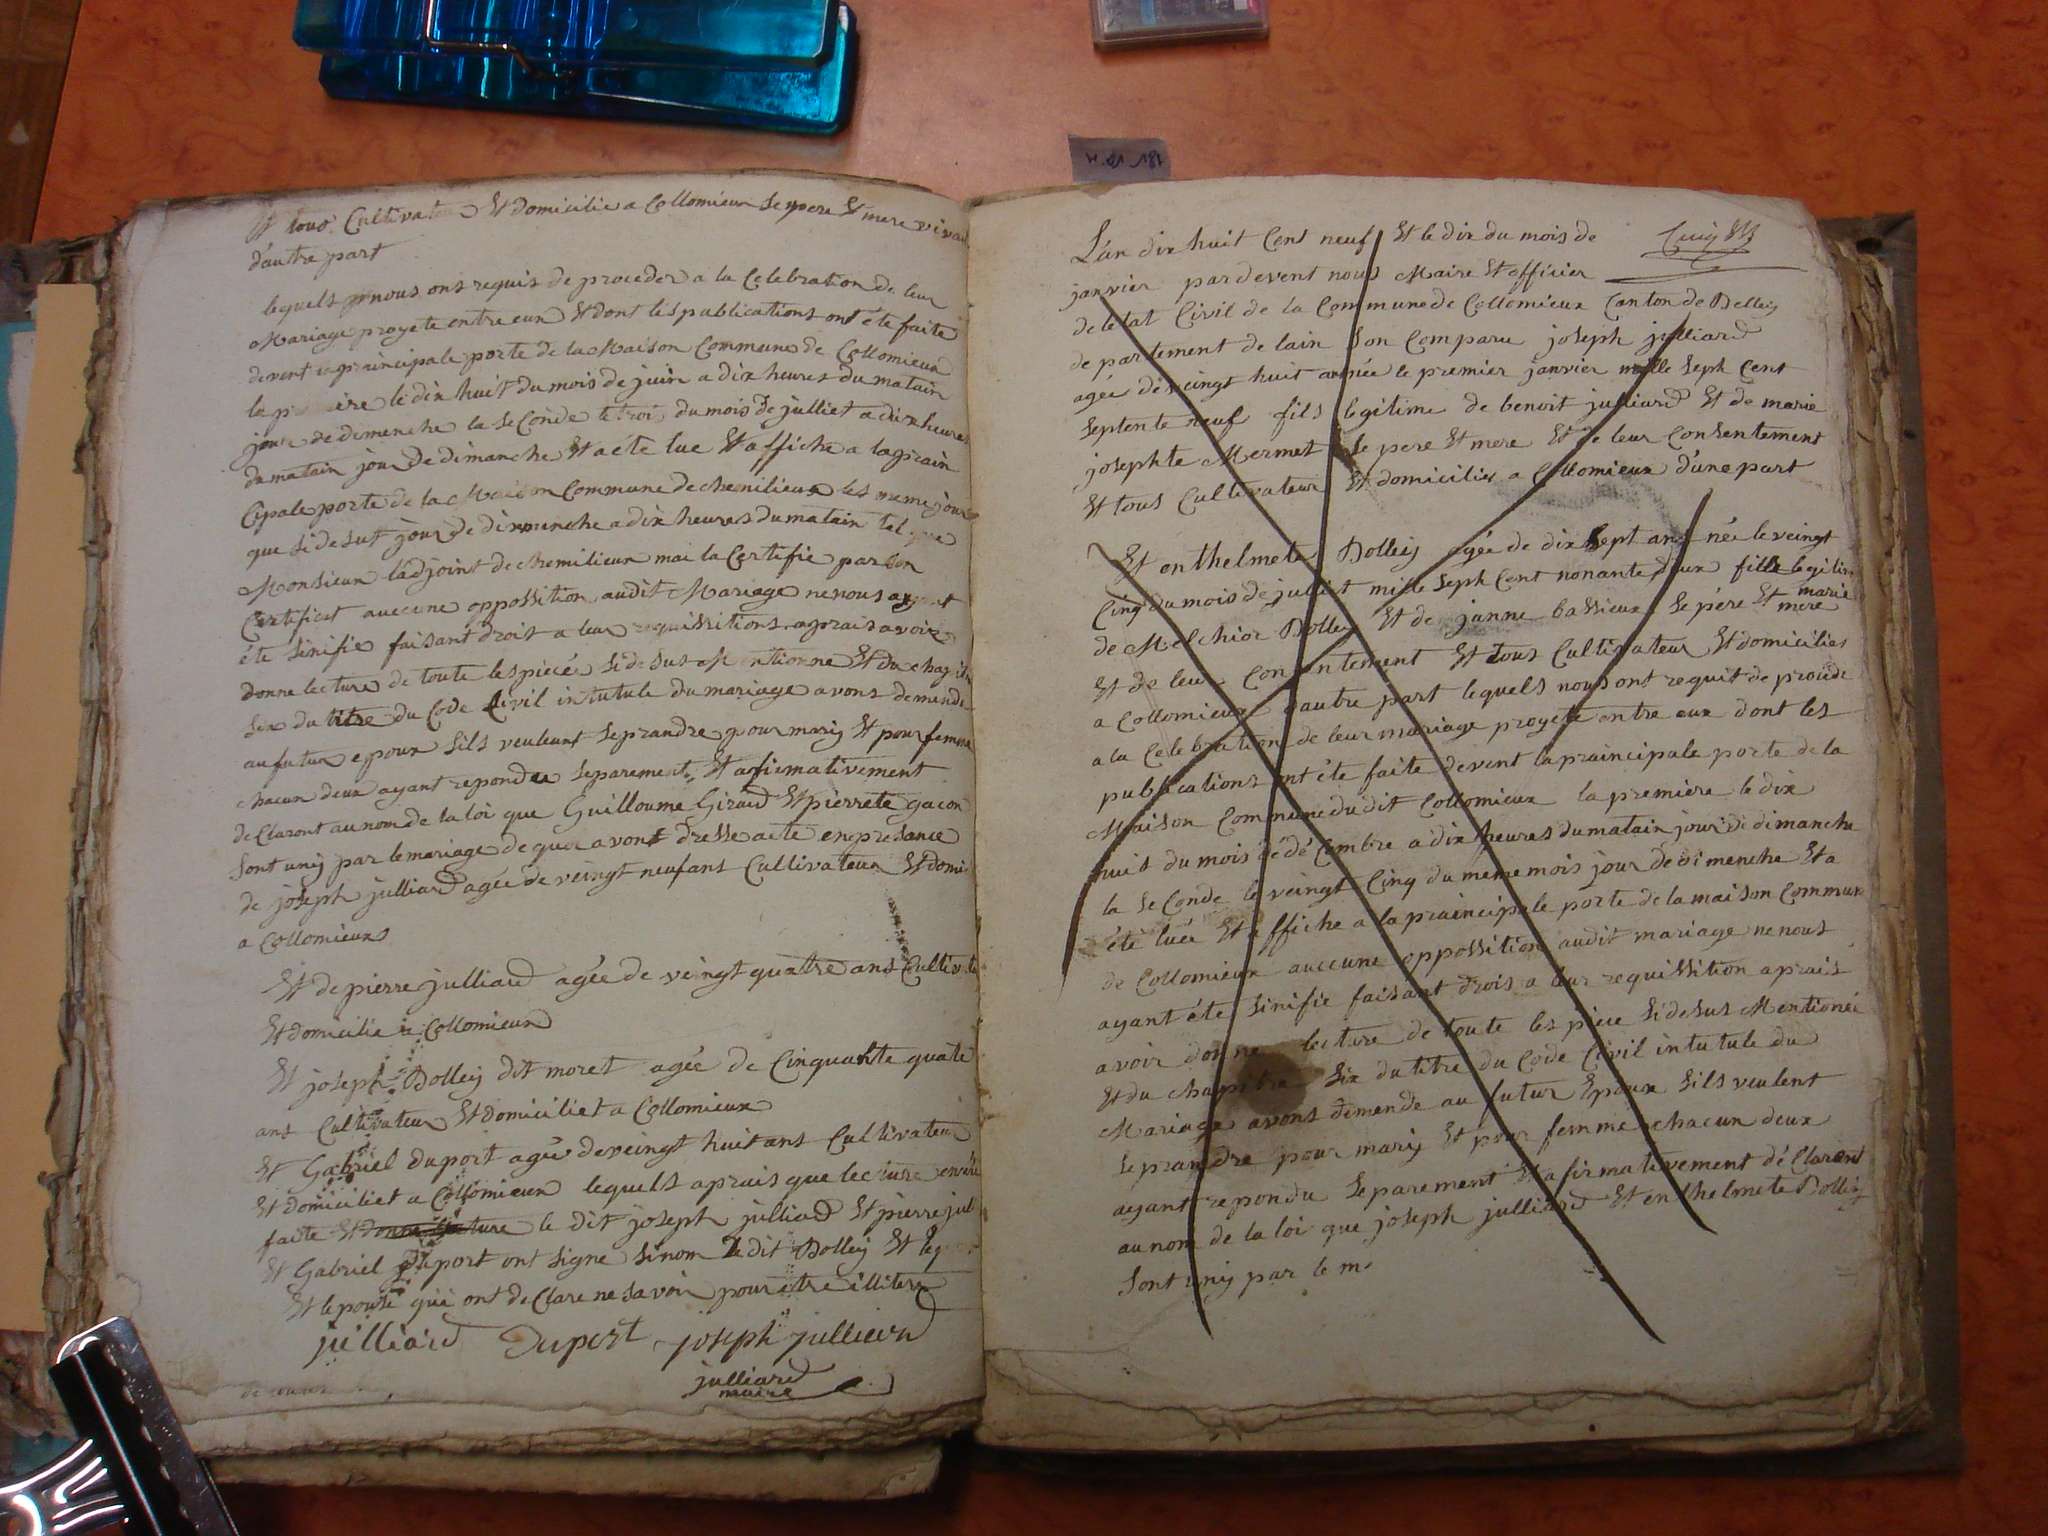 Et tous Cultivateur Et domicilie a Collomieux Se pere Et mere vivan
d'autre part
lequels nous ons requis de proceder a la Celebration de leur
Mariage proyete entre eux Et dont les publications ont éte faite
devent la praincipale porte de la Maison Commune de Collomieux
la premiere le dix huit du mois de juin a dix heures du matain
jour de dimenche la seConde le troi du mois de julliet a dix heures
du matain jour de dimanche Et a éte lue Et affiche a la prain
Cipale porte de la Maison Commune de chemilieux les meme jour
que si desut jour de dimmenche a dix heures du matain tel que
Monsieur ladjoint de chemilieux mai la Certifie par son
Certificat auccune oppossition audit Mariage ne nous ayant
éte sinifie faisant droit a leur requissitions aprais avoir
donne lecture de toute les piecé si desus Mentionne Et du chapitre
six du titre du Code Civil intutule du mariage avons demende
au futur epoux sils veuleunt se prandre pour mariy Et pour femme
chacun deux ayant repondu separement Et afirmativement
deClaront au nom de la loi que Guilloume Giraud Et pierrete gacon
sont uniy par le mariage de quoi avont dresse acte en presance
de joseph julliard agée de veingt neuf ans Cultivateur Et domi
a Collomieux
Et de pierre julliard agée de veingt quatre ans Cultivate
Et domicilie a Collomieux
Et joseph Dolleiy dit moret agée de Cinquante quate
ans Cultivateur Et domiciliet a Collomieux
Et Gabriel duport agée de veingt huit ans Cultivateur
Et domiciliet a Collomieux lequels aprais que lecture en a éte
faite Et le dit joseph julliard Et pierre jul
Et Gabriel duport ont signe sinom le dit Dolleiy Et
Et lepouse qui ont deClare ne savoir pour etre illitere
julliard Duport joseph julliard
julliard
maire
L'an dix huit Cent neuf Et le dix du mois de
janvier pardevent nous Maire Et officier
de letat Civil de la Commune de Collomieux Canton de Belleiy
de partement de lain son Comparu joseph julliard
agée de veingt huit année le premier janvier mille seph Cent
septente neuf fils legitime de benoit julliard Et de marie
josephte Mermet se pere Et mere Et de leur Consentement
Et tous Cultivateur Et domicilies a Collomieux d'une part
Et enthelmete Dolleiy agée de dix sept ans née le veingt
Cinq du mois de julliet mille seph Cent nonante deux fille legitim
marie
de Melchior Dolleiy Et de janne bassieux se pére Et mere
Et de leur Consentement Et tous Cultivateur Et domicilies
a Collomieux d'autre part lequels nous ont requit de proçéde
a la Celebration de leur mariage proyete entre eux dont les
publications ont éte faite devent la praincipale porte de la
Maison Commune du dit Collomieux la première le dix
huit du mois de déCembre a dix heures du matain jour de dimanche
la seConde le veingt Cinq du meme mois jour de dimenche Et a
été luée Et affiche a la praincipale porte de la maison Commun
de Collomieux auccune oppossition audit mariage ne nous
ayant éte sinifie faisant drois a leur requissition aprais
avoir donne lecture de toute les piece si desus Mentioneé
Et du chapitre six du titre du Code Civil intutule du
Mariage avons demende au futur Epoux sils veulent
se prandre pour mariy Et pour femme chacun deux
ayant repondu separement Et afirmativement déClaront
au nom de la loi que joseph julliard Et enthelmete Dolleiy
sont uniy par le m